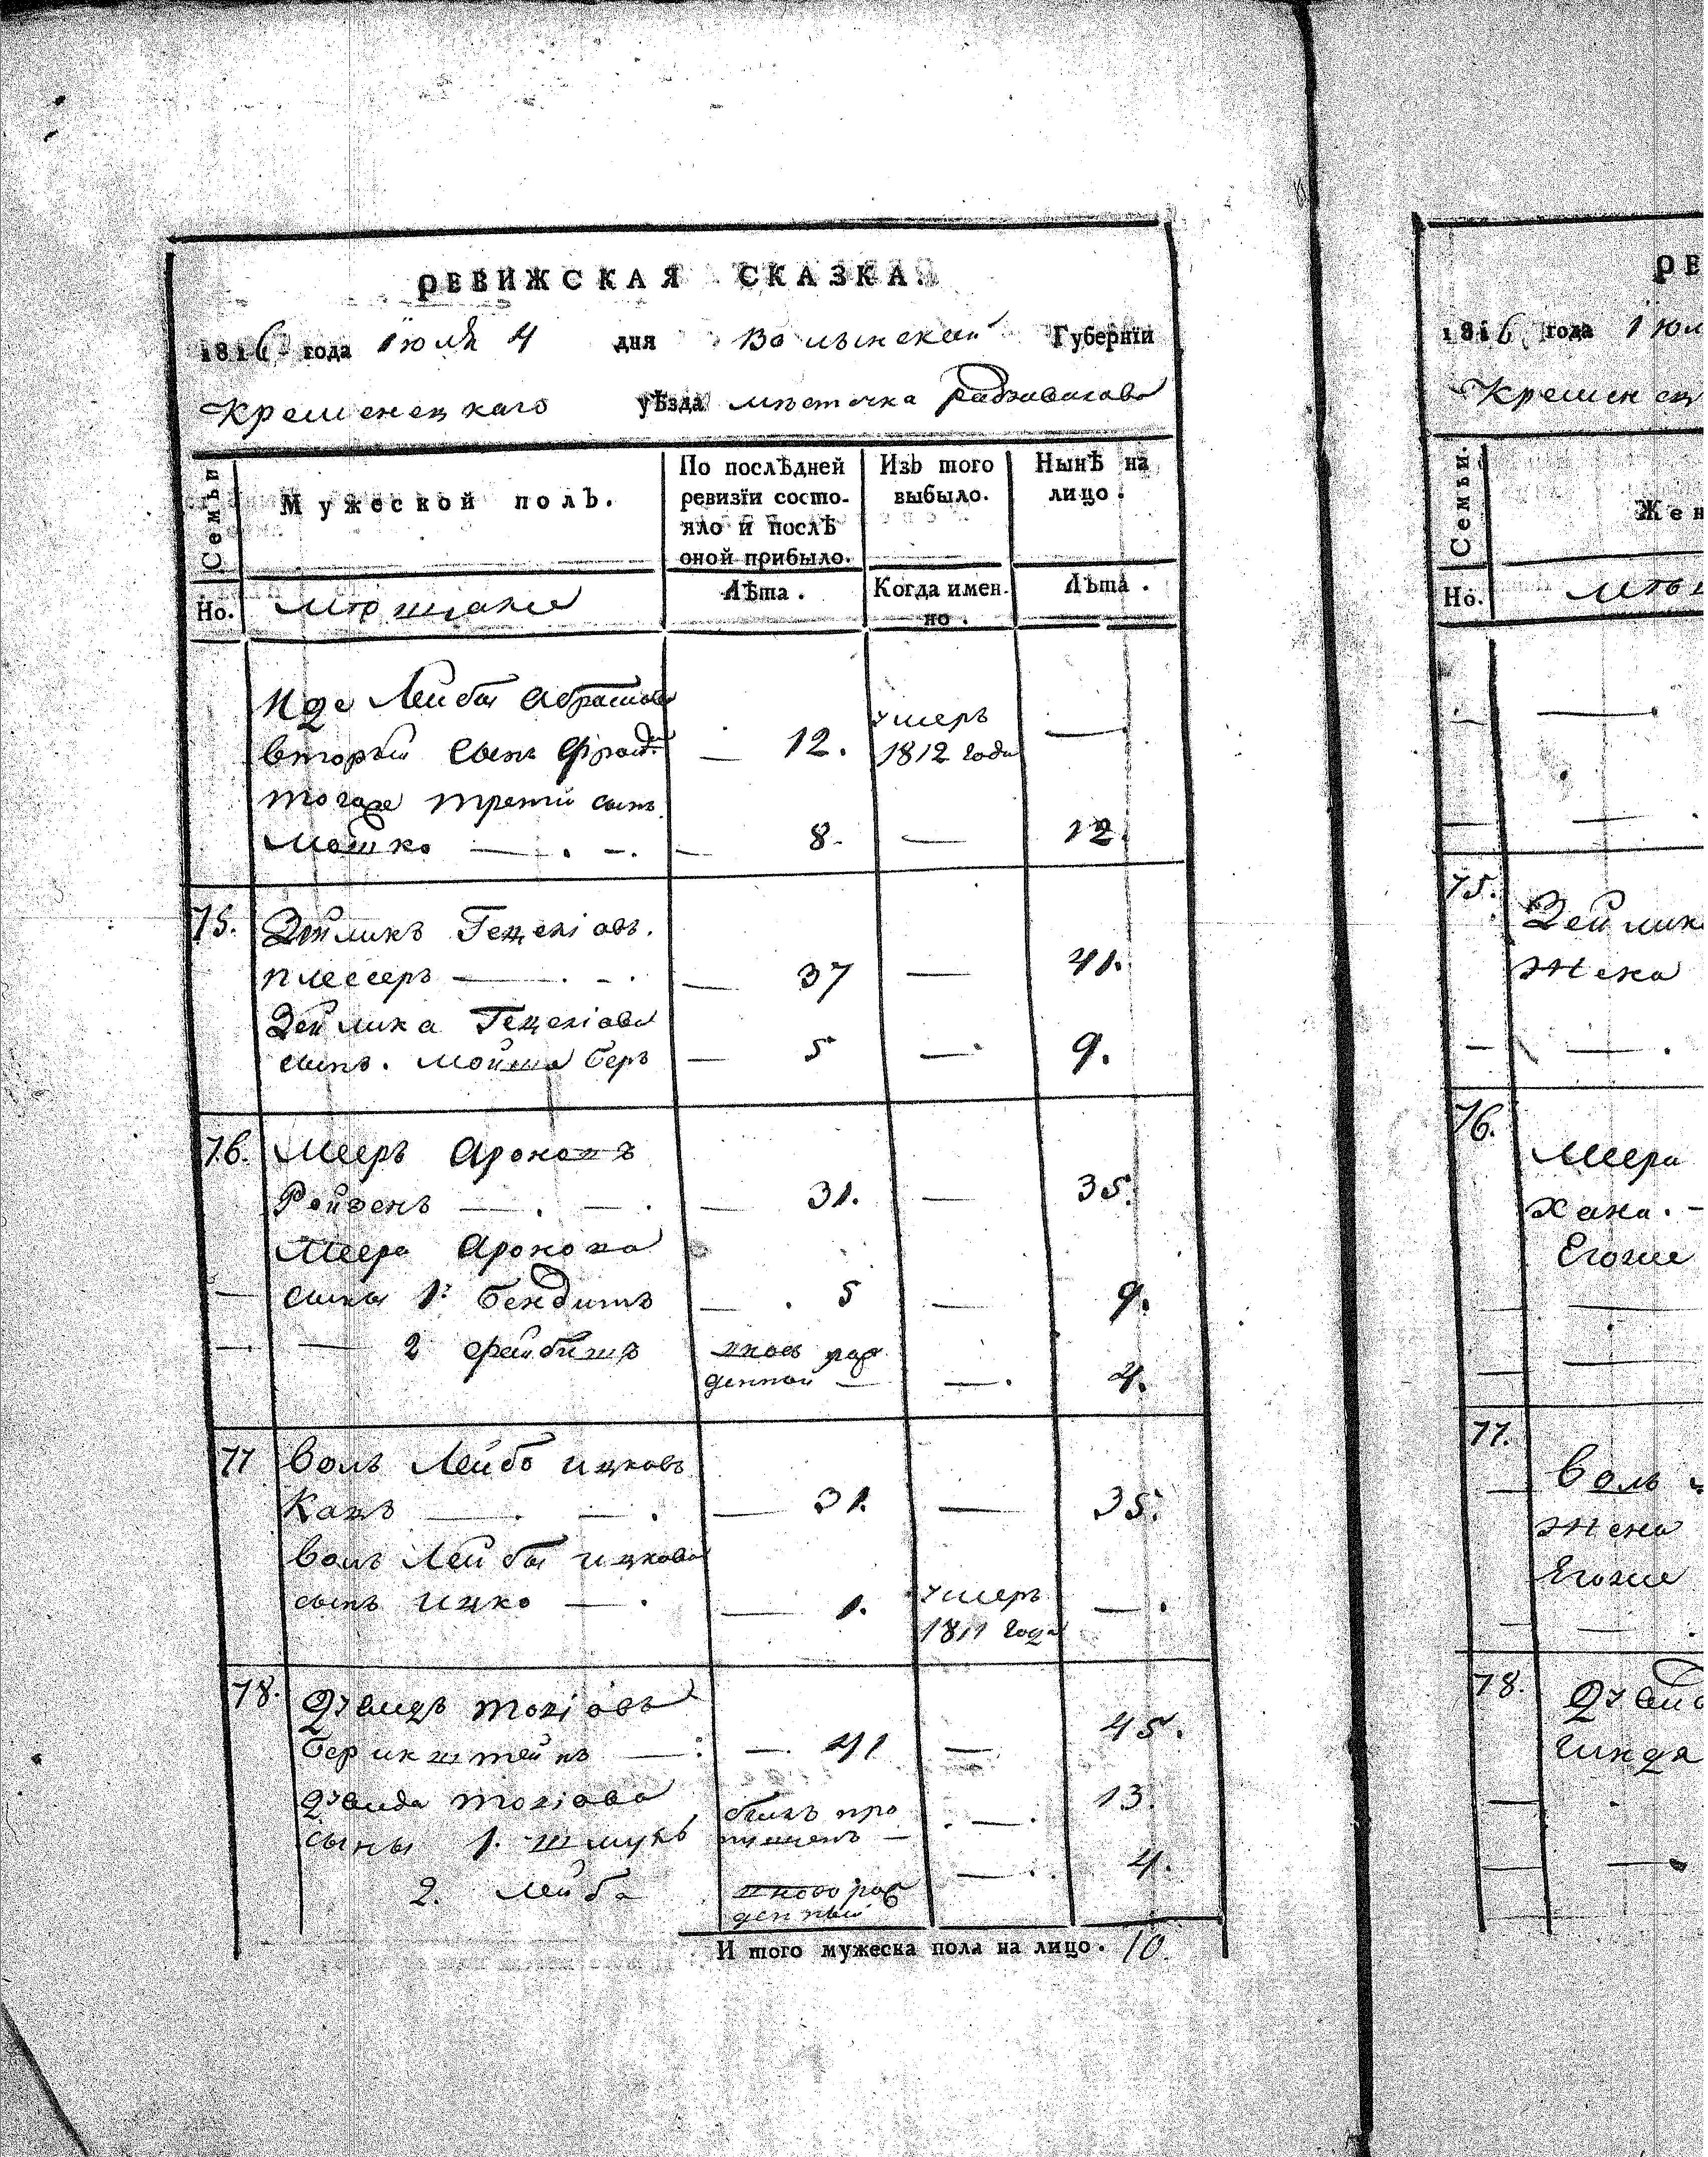 РЕВИЖСКАЯ СКАЗКА.
1816 года Июля 4 дня Волынской Губернїи
Кременецкаго уѣзда мѣстечка Радзивилова
Семьи
Мужеской полъ.
По послѣдней
ревизїи состо-
яло и послѣ
оной прибыло.
Изъ того
выбыло.
Нынѣ на
лицо.
Но.
мѣщане
Лѣта.
Когда имен-
но.
Лѣта.
Лейбы Абрамова
вторый сынъ 12. умеръ
1812 года
тогоже третій сынъ
Мошко 8. 12.
75. Зейликъ Гецеліовъ
Плесеръ 37 41.
Зейлика Гецеліова
сынъ. Мойша Беръ 5 9.
76. Мееръ Ароновъ
Ройзенъ 31. 35.
Меера Аронова
сыны 1. Бендитъ 5 9.
2 Фейбишъ вновь рож
денной 4.
77 Волъ Лейба Ицковъ
Кацъ 31. 35.
Волъ Лейбы Ицкова
сынъ Ицко 1. умеръ
1811 года
78. Дувидъ
Беринштейнъ 41 45.
Дувида
сыны 1. Шмуль былъ про
пущенъ 13.
2. Лейба вново рож
денный 4.
И того мужеска пола на лицо. 10.
РЕ
1816 года Июл
Кременец
Семьи.
Жен
Но.
мѣщ
75. Зейлик
жена
76.
Меера
Хана.
Егоже
77.
Волъ
жена
Егоже
78. Дувид
Гинда